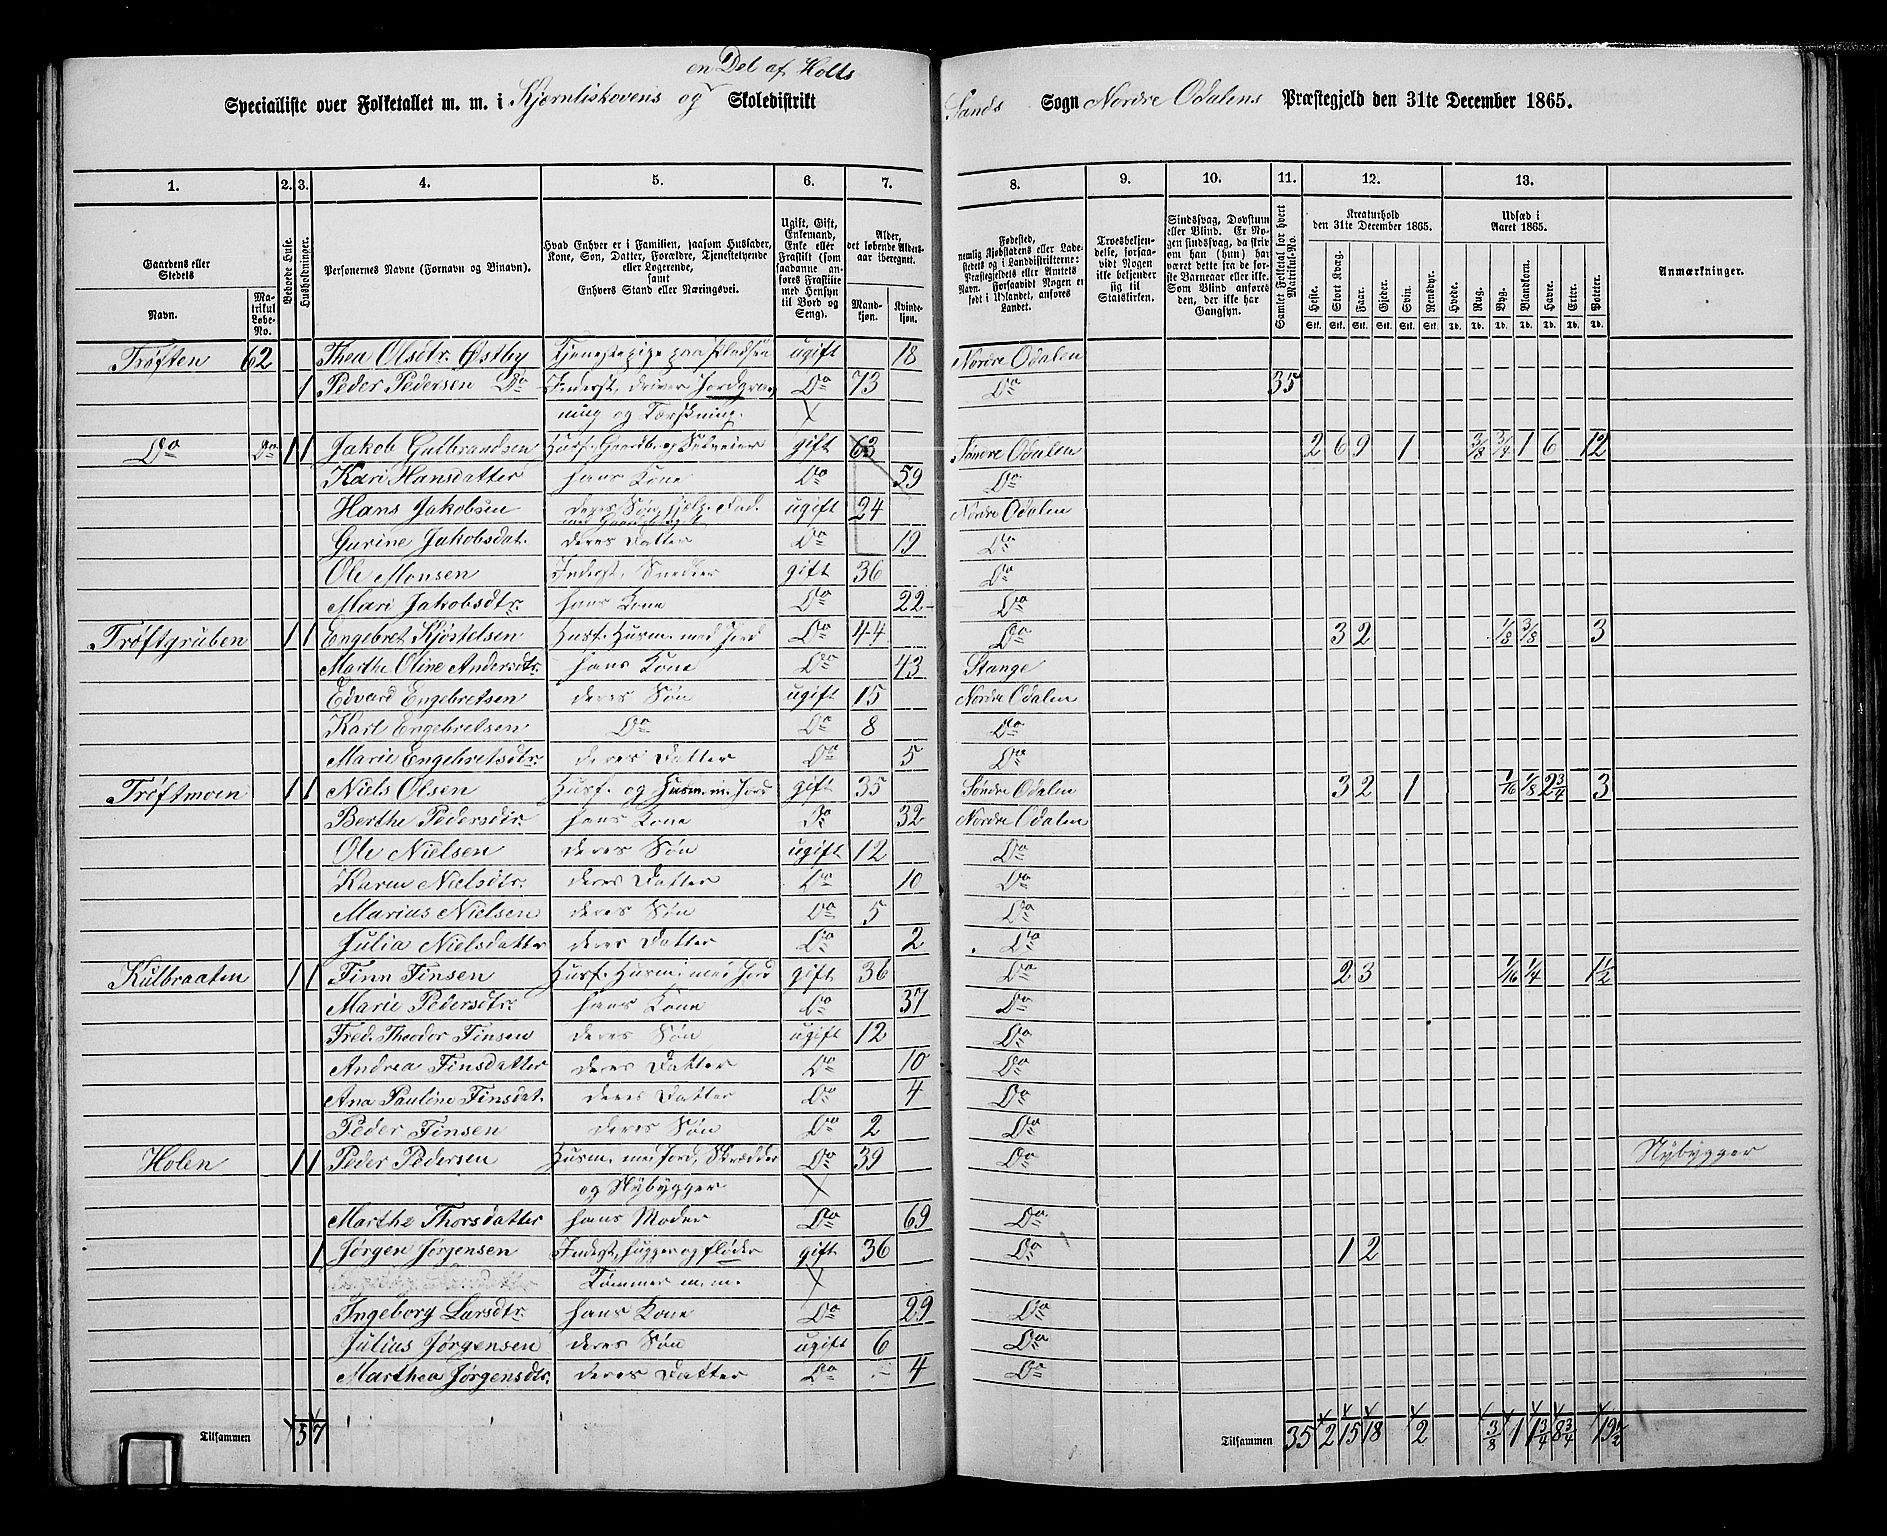 en Del af Holts
Specialliste over Folketallet m. m. i Kjernliskovens og Skoledistrikt Sands Sogn Nordre Odalens Præstegjeld den 31te December 1865.
1. 2. 3. 4. 5. 6. 7. 8. 9. 10. 11. 12. 13.
Gaardens eller Stedets
Navn.
Matrikul Løbe-No.
Beboede Huse.
Husholdninger.
Personernes Navne (Fornavn og Binavn).
Hvad Enhver er i Familien, saasom Husfader, Kone, Søn, Datter, Forældre, Tjenestetyende eller Logerende, samt Enhvers Stand eller Næringsvei.
Ugift, Gift, Enkemand, Enke eller Fraskilt (som saadanne anføres Fraskilte med Hensyn til Bord og Seng).
Alder, det løbende Aldersaar iberegnet.
Mandkjøn. Kvindekjøn.
Fødested, nemlig Kjøbstadens eller Ladestedets og i Landdistrikterne: Præstegjeldets eller Amtets Navn. Forsaavidt Nogen er født i Udlandet, anføres Landet.
Troesbekjendelse, forsaavidt Nogen ikke bekjender sig til Statskirken.
Sindssvag, Døvstum eller Blind. Er Nogen sindssvag, da skriv om han (hun) har været dette fra de første Barneaar eller ikke. Som Blind anføres den, der ikke har Gangsyn.
Samlet Folketal for hvert Matrikul-No.
Kreaturhold den 31te December 1865.
Heste. Stort Kvæg. Faar. Gjeder. Svin. Rensdyr.
Udsæd i Aaret 1865.
Hvede. Rug. Byg. Blandkorn. Havre. Erter. Poteter.
Anmærkninger.
Trøften 62 Thea Olsdtr. Østby Tjenestepige paa Pladsen ugift 18 Nordre Odalen
1 Peder Pedersen Do Inderst, driver Jordgrav- Do 73 Do 35
ning og Tærskning.
Do Do 1 1 Jakob Gulbrandsen Husf. Gaardbr. og Selveier gift 63 Søndre Odalen 2 6 9 1 3/8 3/4 1 6 12
Kari Hansdatter hans Kone Do 59 Do
Hans Jakobsen deres Søn, hjelp. Fad. med Gaardsbruget ugift 24 Nordre Odalen
Gurine Jakobsdat. deres Datter Do 19 Do
Ole Monsen Inderst, Snedker gift 36 Do
Mari Jakobsdtr. hans Kone Do 22 Do
Trøftgruben 1 1 Engebret Kjøstelsen Husf. Husm. med Jord Do 44 Do 3 2 1/8 3/8 3
Marthe Oline Andersdtr. hans Kone Do 43 Stange
Edvard Engebretsen deres Søn ugift 15 Nordre Odalen
Karl Engebretsen Do Do 8 Do
Marie Engebretsdtr. deres Datter Do 5 Do
Trøftmoen 1 1 Niels Olsen Husf. og Husm. m. Jord gift 35 Søndre Odalen 3 2 1 1/16 1/8 2 3/4 3
Berthe Pedersdtr. hans Kone Do 32 Nordre Odalen
Ole Nielsen deres Søn ugift 12 Do
Karen Nielsdtr. deres Datter Do 10 Do
Marius Nielsen deres Søn Do 5 Do
Julia Nielsdatter deres Datter Do 2 Do
Kulbraaten 1 1 Finn Finsen Husf. Husm. med Jord gift 36 Do 2 3 1/16 1/4 1 1/2
Marie Pedersdtr. hans Kone Do 37 Do
Fred. Theodor Finsen deres Søn ugift 12 Do
Andrea Finsdatter deres Datter Do 10 Do
Ana Pauline Finsdat. deres Datter Do 4 Do
Peder Finsen deres Søn Do 2 Do
Holen 1 1 Peder Pedersen Husm. med Jord, Skrædder Do 39 Do Nybygger
og Nybygger
Marthe Thorsdatter hans Moder Do 69 Do
1 Jørgen Jørgensen Inderst, hugger og fløder gift 36 Do 1 2
Tømmer m.m.
Ingeborg Larsdtr. hans Kone Do 29 Do
Julius Jørgensen deres Søn ugift 6 Do
Marthea Jørgensdtr. deres Datter Do 4 Do
Tilsammen 5 7 Tilsammen 35 2 15 18 2 3/8 1 1 3/4 8 3/4 19 1/2